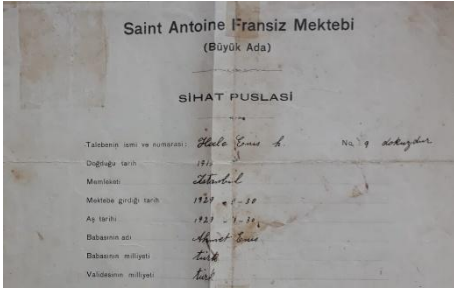 Saint Antoine Fransiz Mektebi
(Büyük Ada)
SİHAT PUSLASİ
Talebenin ismi ve numarası: Hale Emin h. No 9 dokuzdur
Doğduğu tarih
Memleketi İstanbul
Mektebe girdiği tarih 1929
Aş tarihi 1929
Babasının adı Ahmet Emin
Babasının milliyeti türk
Validesinin milliyeti türk